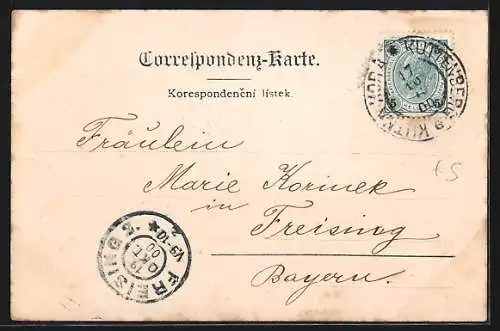 Correspondenz-Karte.
Korespondenční lístek.
KUTTENBERG
KUTNÁ HORA
17
00
Fräulein
Marie Korinek
in
Freising
Bayern.
FREISING 2.
19
OKT.
00
V 9-10
LS